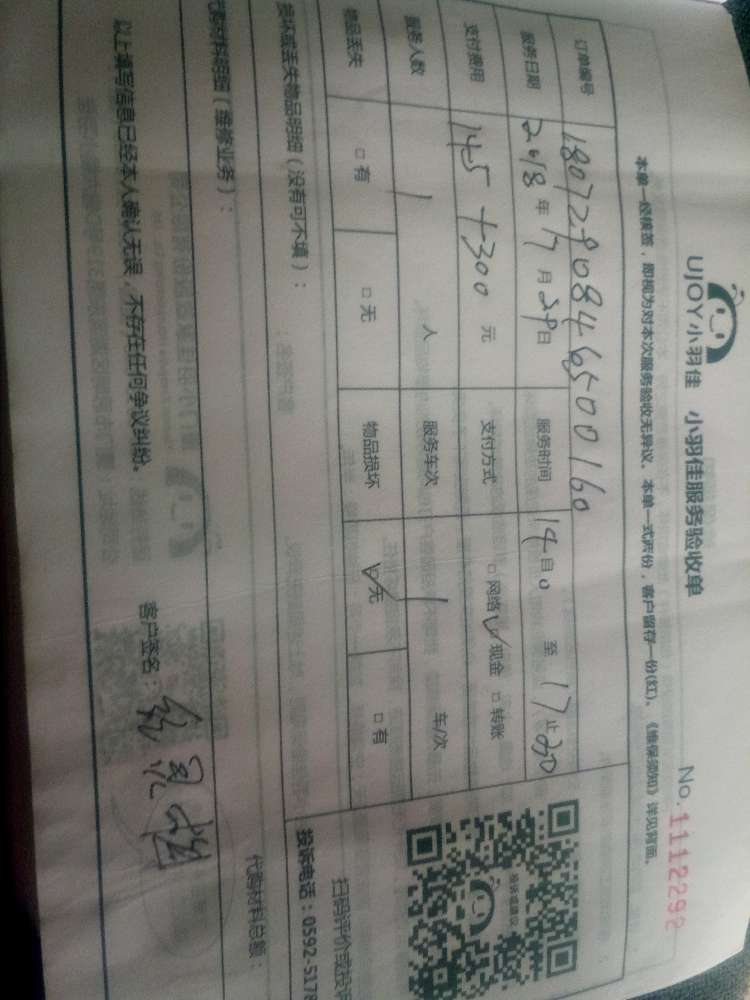 UJOY小羽佳 小羽佳服务验收单
No. 1112292
本单一经候签，即视为对本次服务验收无异议、本单一式两份，客户留存一份(红)。《维保须知》详见背面。
订单编号 1807290846500160
服务日期 2018年 月29日 服务时间 14自0 至 17止30
支付费用 145+300元 支付方式 □网络 ☑现金 □转账
服务人数 1 人 服务车次 1 车/次
物品丢失 □有 □无 物品损坏 ☑无 □有
损坏或丢失物品明细（没有可不填）：
代购材料明细（维修业务）：
代购材料总额：
以上填写信息已经本人确认无误，不存在任何争议纠纷。
客户签名：
投诉或建议
扫码评价或投诉
投诉电话：0592-5178